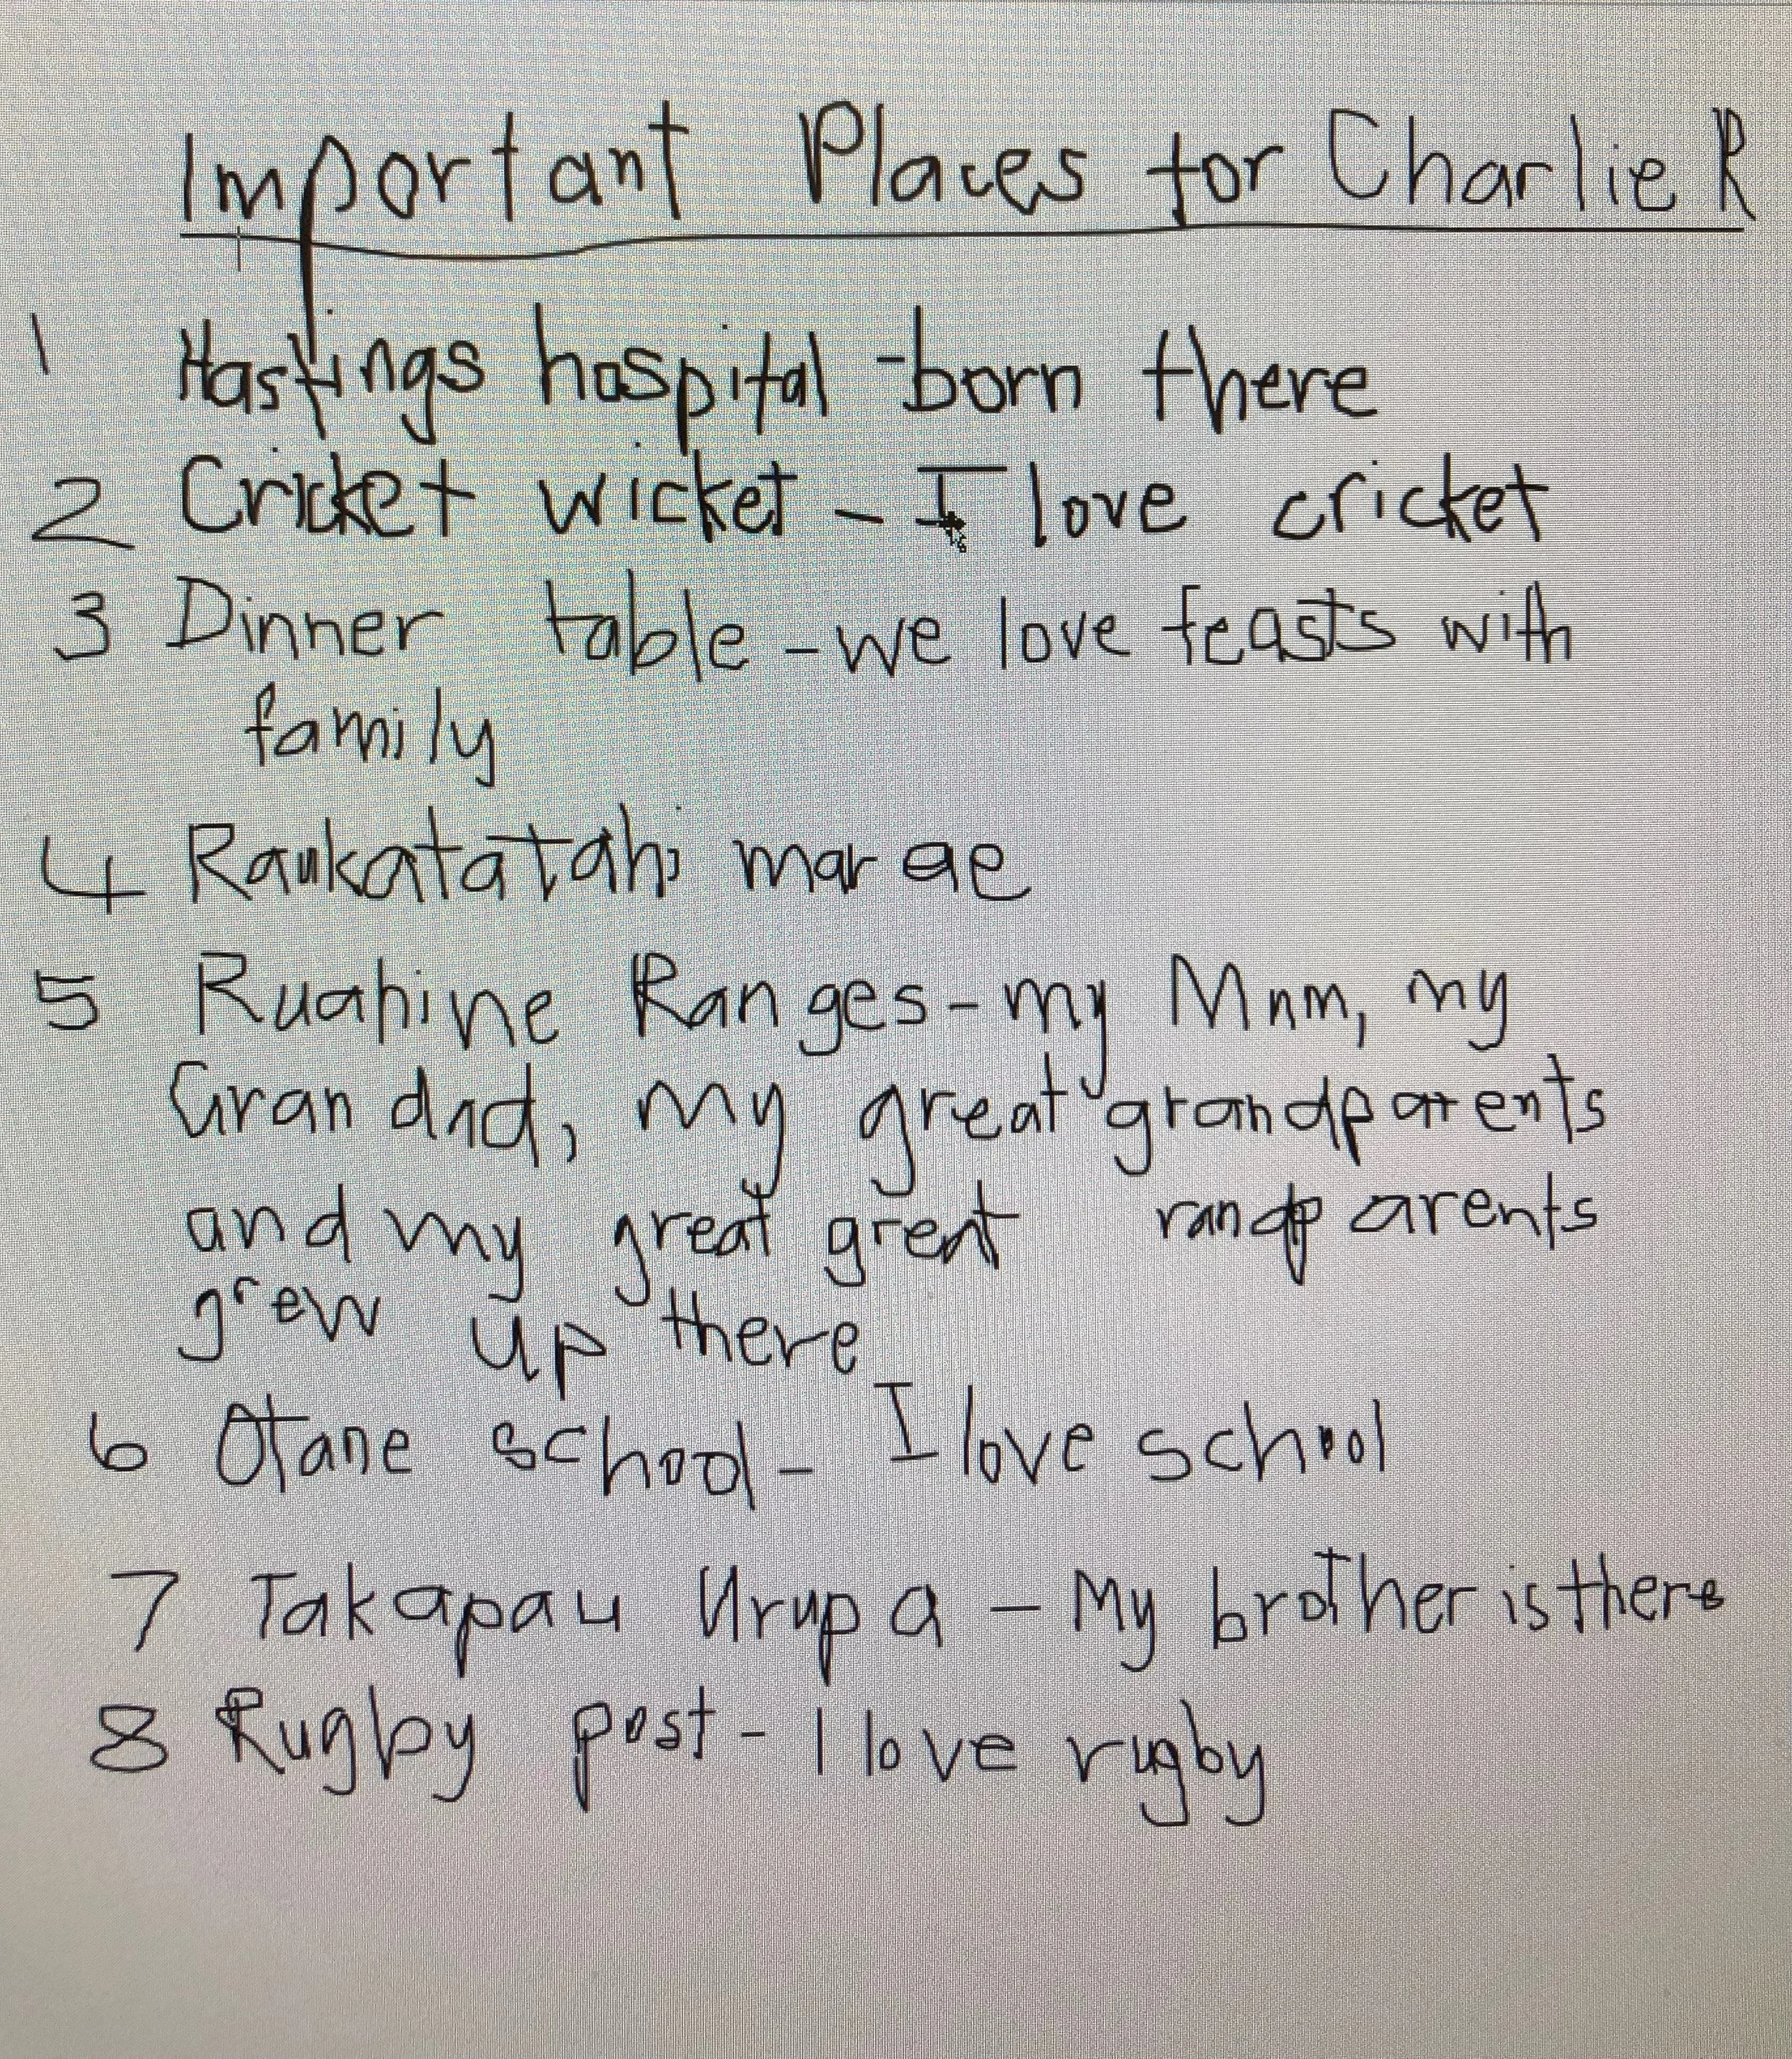 Important Places for Charlie R
1 Hastings hospital - born there
2 Cricket wicket - I love cricket
3 Dinner table - we love feasts with
family
4 Raukatatahi marae
5 Ruahine Ranges - my Mum, my
Grandad, my great grandparents
and my great great randparents
grew up there
6 Otane school - I love school
7 Takapau Urupa - My brother is there
8 Rugby post - I love rugby